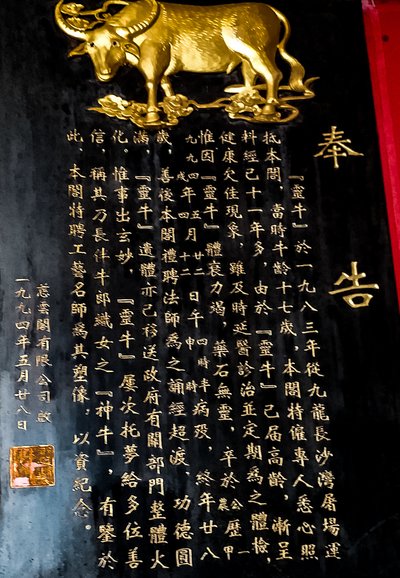 奉告
『靈牛』於一九八三年從九龍長沙灣屠場運
抵本閣，當時牛齡十七歲，本閣特僱專人悉心照
料經已十一年多，由於『靈牛』已屆高齡，漸呈
健康欠佳現象，雖及時延醫診治並定期為之體檢，
惟因『靈牛』體衰力竭，藥石無靈，卒於公歷一農歷甲
九九四年五月廿二日午四時半戌年四月十二日申時病歿，終年廿八
歲，善後本閣禮聘法師為之誦經超渡，功德圓
滿，『靈牛』遺體亦已移送政府有關部門整體火
化，惟事出玄妙，『靈牛』屢次托夢給多位善
信，稱其乃長伴牛郎織女之『神牛』，有鑒於
此，本閣特聘工藝名師為其塑像，以資紀念。
慈雲閣有限公司啟
一九九四年五月廿八日